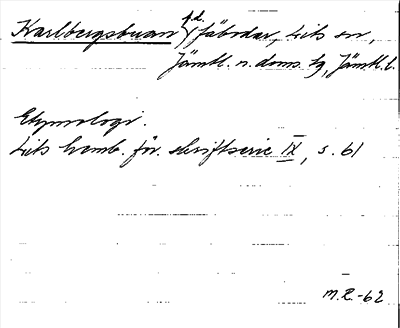 Karlbergsbuan f.d. fäbodar, Lits sn,
Jämtl. n. doms. tg, Jämtl. l.
Etymologi.
Lits hemb. för. skriftserie IX, s. 61
M.R.-62